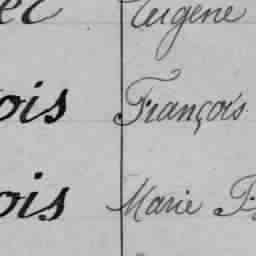 Eugène
ois François
ois Marie